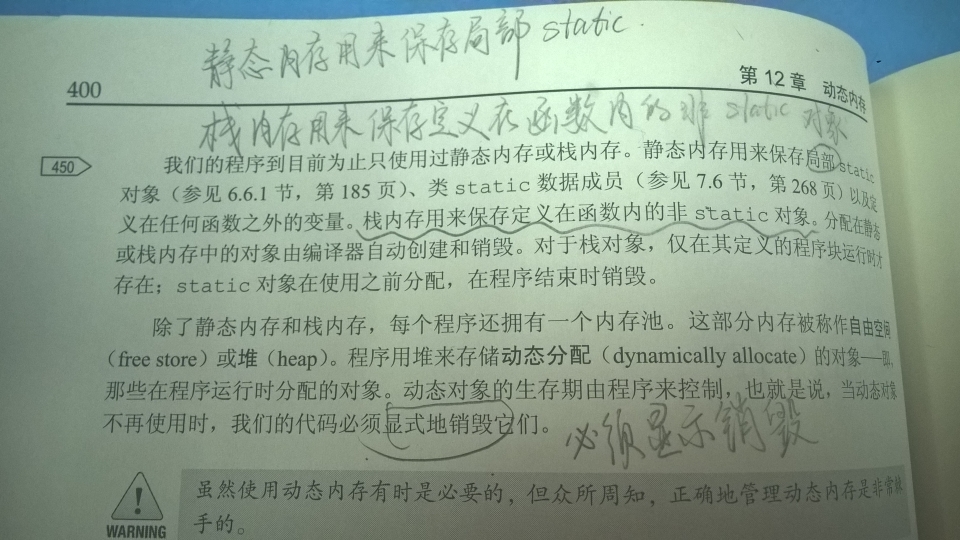 静态内存用来保存局部 static.
400
第 12 章 动态内存
栈内存用来保存定义在函数内的非 static 对象
450
我们的程序到目前为止只使用过静态内存或栈内存。静态内存用来保存局部 static
对象（参见 6.6.1 节，第 185 页）、类 static 数据成员（参见 7.6 节，第 268 页）以及定
义在任何函数之外的变量。栈内存用来保存定义在函数内的非 static 对象。分配在静态
或栈内存中的对象由编译器自动创建和销毁。对于栈对象，仅在其定义的程序块运行时才
存在；static 对象在使用之前分配，在程序结束时销毁。
除了静态内存和栈内存，每个程序还拥有一个内存池。这部分内存被称作自由空间
（free store）或堆（heap）。程序用堆来存储动态分配（dynamically allocate）的对象——即，
那些在程序运行时分配的对象。动态对象的生存期由程序来控制，也就是说，当动态对象
不再使用时，我们的代码必须显式地销毁它们。
必须显示销毁
WARNING
虽然使用动态内存有时是必要的，但众所周知，正确地管理动态内存是非常棘
手的。